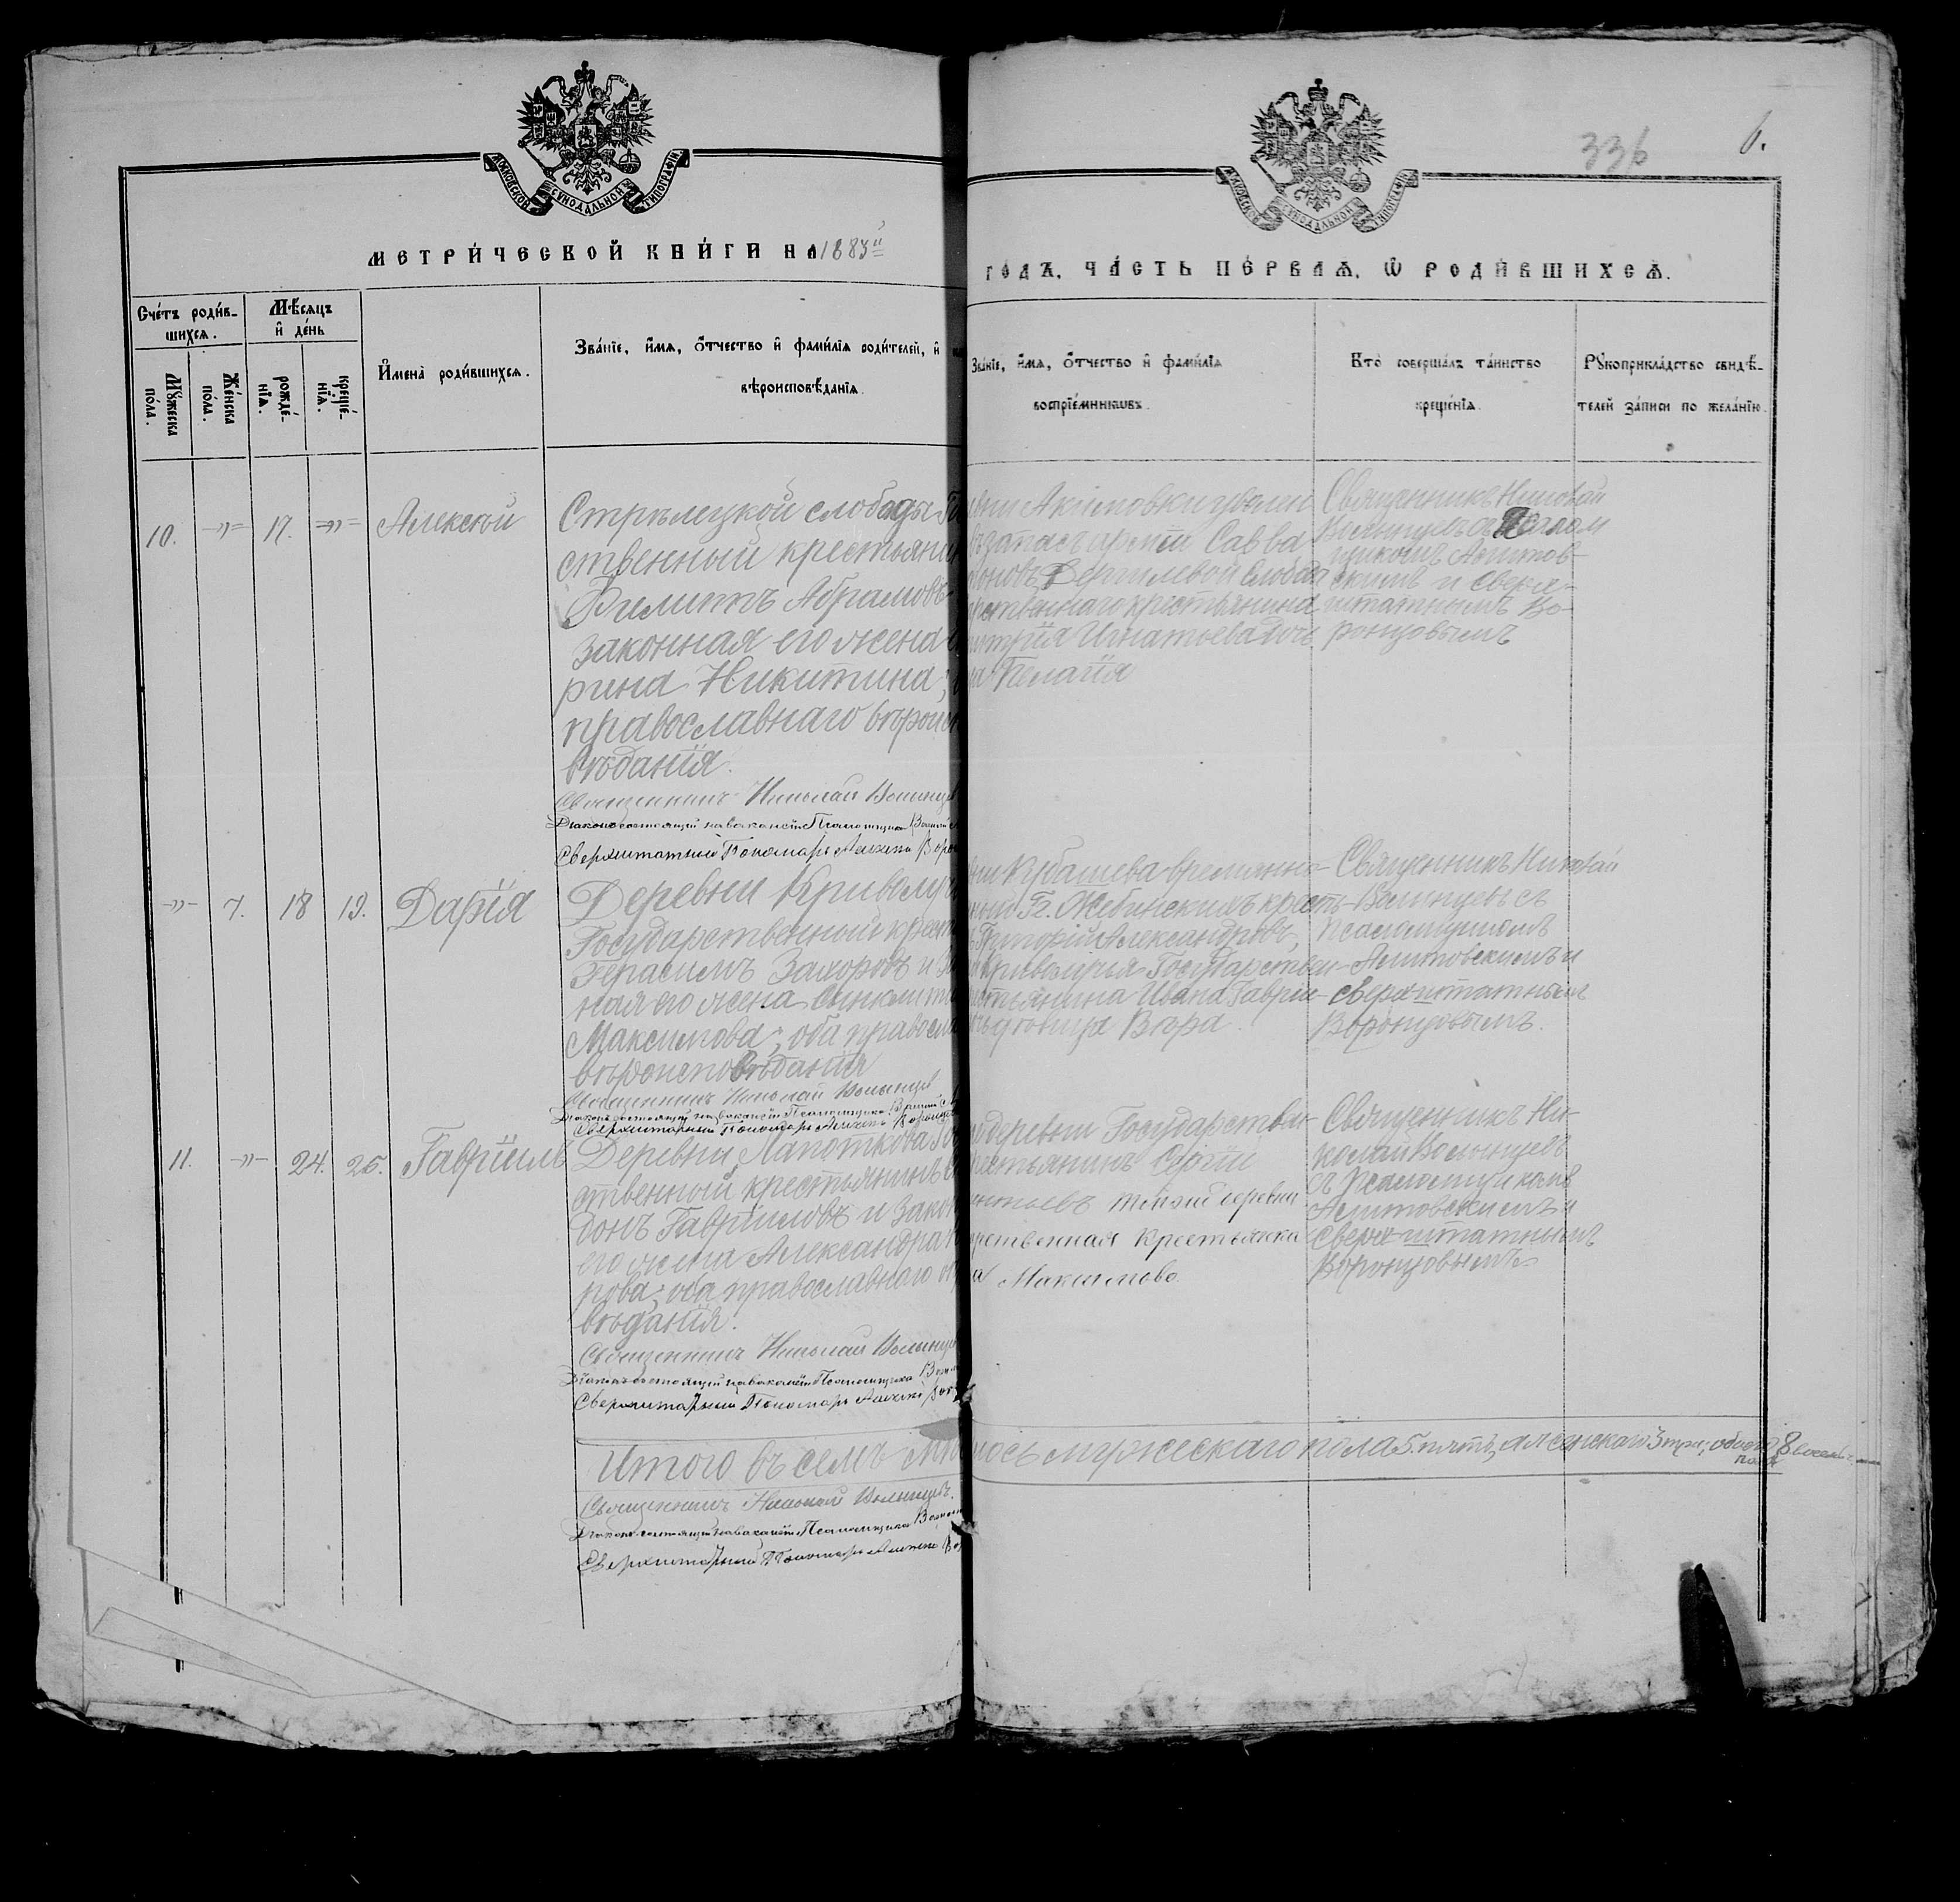 МОСКОВСКОЙ СѴНОДАЛЬНОЙ ТИПОГРАФІИ.
МОСКОВСКОЙ СѴНОДАЛЬНОЙ ТИПОГРАФІИ.
336
6.
МЕТРИ́ЧЕСКОЙ КНИ́ГИ НА 1883й
ГО́ДЪ, ЧА́СТЬ ПЕ́РВАѦ, Ѡ҆ РОДИ́ВШИХСѦ.
Сче́тъ роди́в-
шихсѧ.
Мѣ́сѧцъ
и҆ де́нь
Мꙋ́жеска
по́ла.
Же́нска
по́ла.
рожде́-
нїѧ.
креще́-
нїѧ.
И҆мена̀ роди́вшихсѧ.
Зва́нїе, и҆́мѧ, ѻ҆́тчество и҆ фами́лїѧ роди́телей, и҆
вѣроисповѣ́данїѧ.
Зва́нїе, и҆́мѧ, ѻ҆́тчество и҆ фами́лїѧ
воспрїе́мникωвъ.
Кто̀ соверша́лъ та́инство
креще́нїѧ.
Рꙋкоприкла́дство свидѣ́-
телей за́писи по жела́нїю.
10. -„- 17. -„- Алексѣй
Стрѣлецкой слободы Го
ственный крестьянин
Филиппъ Абрамовъ
законная его жена
рина Никитина;
православнаго вѣроиспо
вѣданія.
Священникъ Николай Волынцев
Діаконъ состоящій на вакансіи Псаломщика
Сверхштатный Пономарь Алексѣй Воро
вни Акимовки уволен
въ запасъ арміи Савва
оновъ, Дергилевой слобод
арственнаго крестьянина
митрія Игнатьева доч
ра Пелагія
Священникъ Николай
Волынцевъ съ Псалом
щикомъ Аситов-
скимъ и сверх-
штатнымъ Во-
ронцовымъ
-„- 7. 18 19. Дарія
Деревни Криволуч
Государственный крест
Герасимъ Захоровъ и За
ная его жена Синклити
Максимова; оба правосла
вѣроисповѣданія
Священникъ Николай Волынцев
Діаконъ состоящій на вакансіи Псаломщика
Сверхштатный Пономарь Алексѣй Воронцов
вни Кубашева временно-
ный Гг. Жебинскихъ кресть-
Григорій Александровъ,
Криволучья Государствен-
стьянина Ивана Гавріи-
дѣвица Вѣра.
Священникъ Николай
Волынцевъ съ
Псаломщикомъ
Аситовскимъ и
сверхштатнымъ
Воронцовымъ.
11. -„- 24. 25. Гавріилъ
Деревни Лапоткова Гос
ственный крестьянинъ
донъ Гавріиловъ и закон
его жена Александра
рова; оба православнаго вѣр
вѣданія.
Священникъ Николай Волынцев
Діаконъ состоящій на вакансіи Псаломщика
Сверхштатный Пономарь Алексѣй Вор
деревни Государствен-
рестьянинъ Сергій
ентьевъ той же деревни
рственная крестьянка
а Максимова.
Священникъ Ни-
колай Волынцевъ
съ Псаломщикомъ
Аситовскимъ и
сверхштатнымъ
Воронцовымъ
Итого въ семъ
лось мужескаго пола 5. пять, а женскаго 3 три; обоего 8 восемь.
пола
Священникъ Николай Волынцевъ.
Діаконъ состоящій на вакансіи Псаломщика
Сверхштатный Пономарь Алексѣй Во